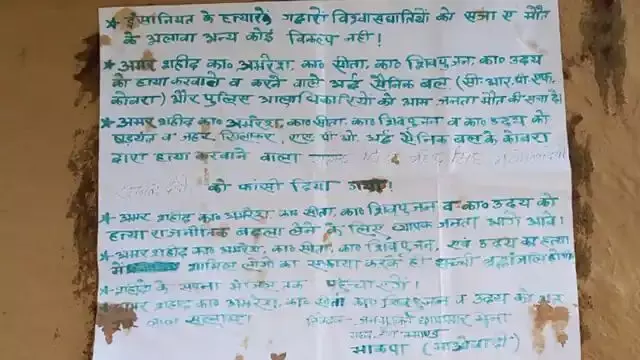 ★ इंसानियत के हत्यारों गद्दारों विश्वासघातियों को सजा ए मौत
के अलावा अन्य कोई विकल्प नहीं!
★ अमर शहीद का० अमरेश, का० सीता, का० शिवपूजन, का० उदय
की हत्या करवाने व करने वाले अर्द्ध सैनिक बल (सी.आर.पी.एफ.
कोबरा) और पुलिस आला अधिकारियों को आम जनता मौत की सजा दे।
★ अमर शहीद का० अमरेश, का० सीता, का० शिवपूजन व का० उदय को
षड्यंत्र व जहर खिलाकर, एस.पी.ओ. अर्द्ध सैनिक बल के कोबरा
द्वारा हत्या करवाने वाला
को फांसी दिया गया!
★ अमर शहीद का० अमरेश, का० सीता, का० शिवपूजन व का० उदय की
हत्या राजनीतिक बदला लेने के लिए व्यापक जनता आगे आवे।
★ अमर शहीद का० अमरेश, का० सीता, का० शिवपूजन, एवं उदय का हत्या
में शामिल लोगों का सफाया करके ही सच्ची श्रद्धांजलि होगा
★ शहीदों के सपना मंजिल तक पहुंचाएंगे।
★ अमर शहीद का० अमरेश, का० सीता का० शिवपूजन व उदय को
लाल सलाम
भाकपा (माओवादी)